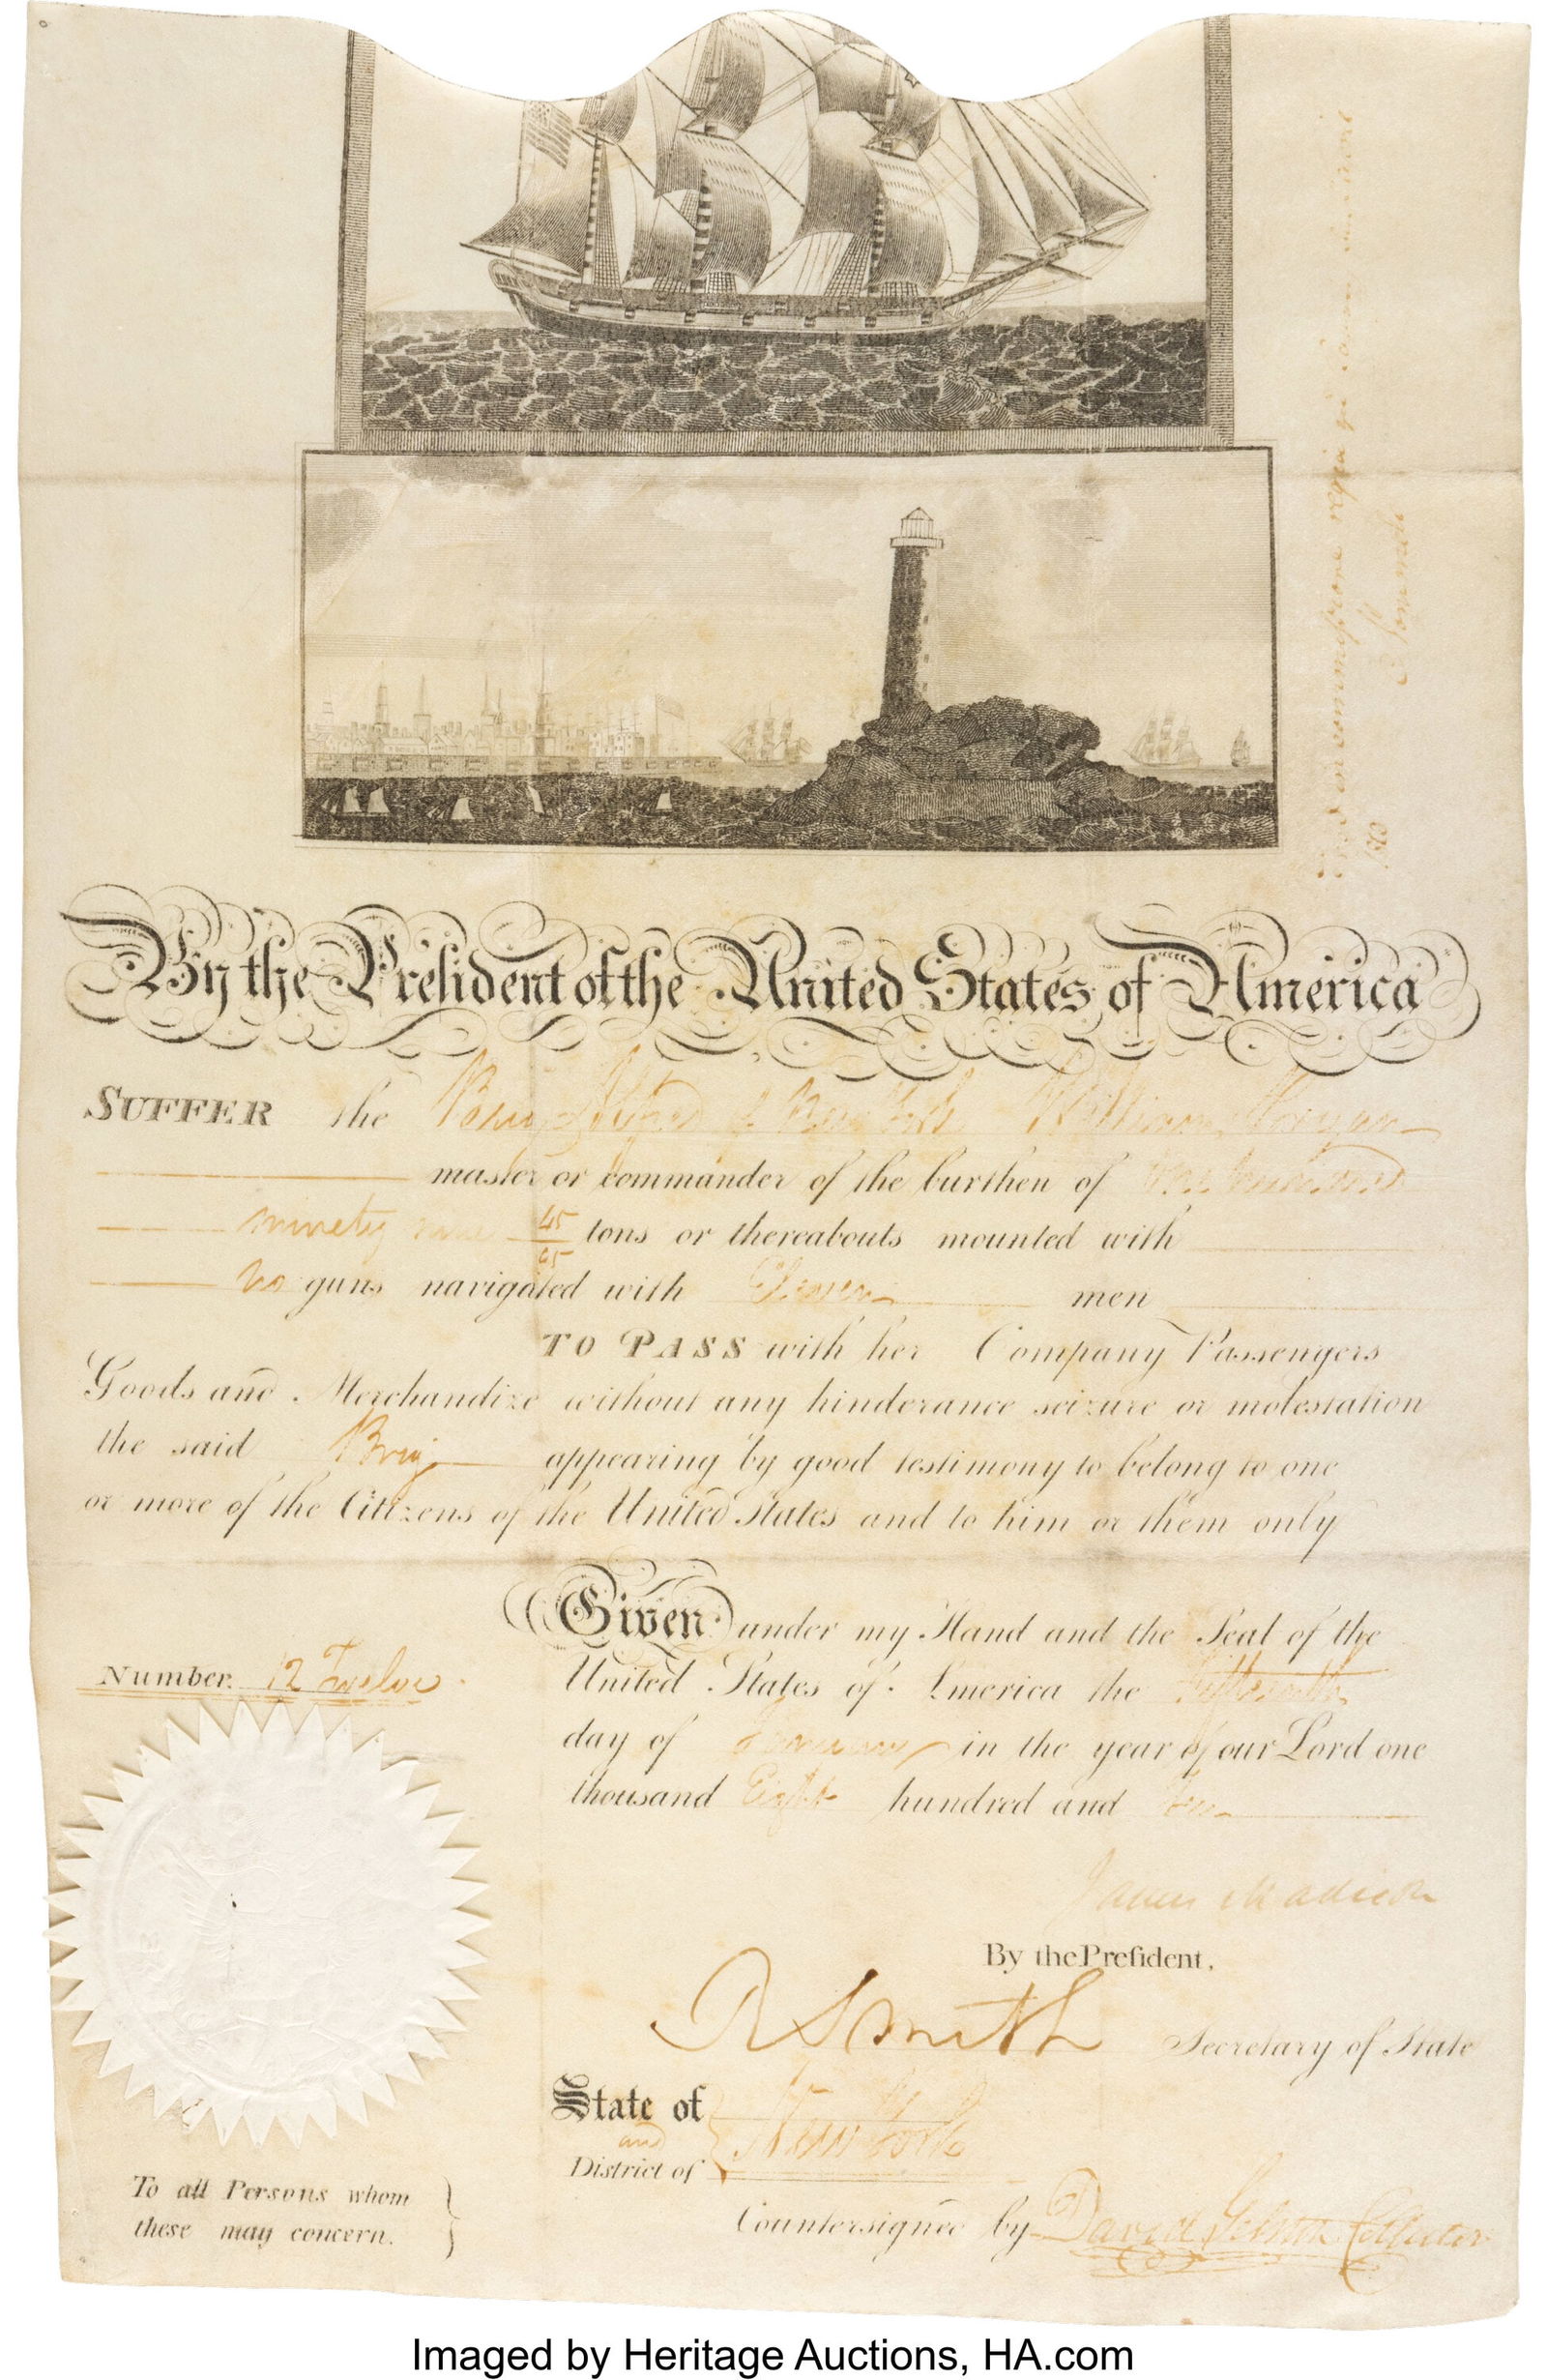 By the President of the United States of America
SUFFER the Brig Alfred of New York William
master or commander of the burthen of one hundred
ninety 45/95 tons or thereabouts mounted with
no guns navigated with Eleven men
TO PASS with her Company Passengers
Goods and Merchandize without any hinderance seizure or molestation
the said Brig appearing by good testimony to belong to one
or more of the Citizens of the United States and to him or them only
Given under my Hand and the Seal of the
United States of America the fifteenth
day of in the year of our Lord one
thousand Eight hundred and Ten
Number. 12 Twelve.
James Madison
By the President,
R Smith Secretary of State
State of
and
District of
New York
Countersigned by David Gelston Collector
To all Persons whom
these may concern.
Imaged by Heritage Auctions, HA.com